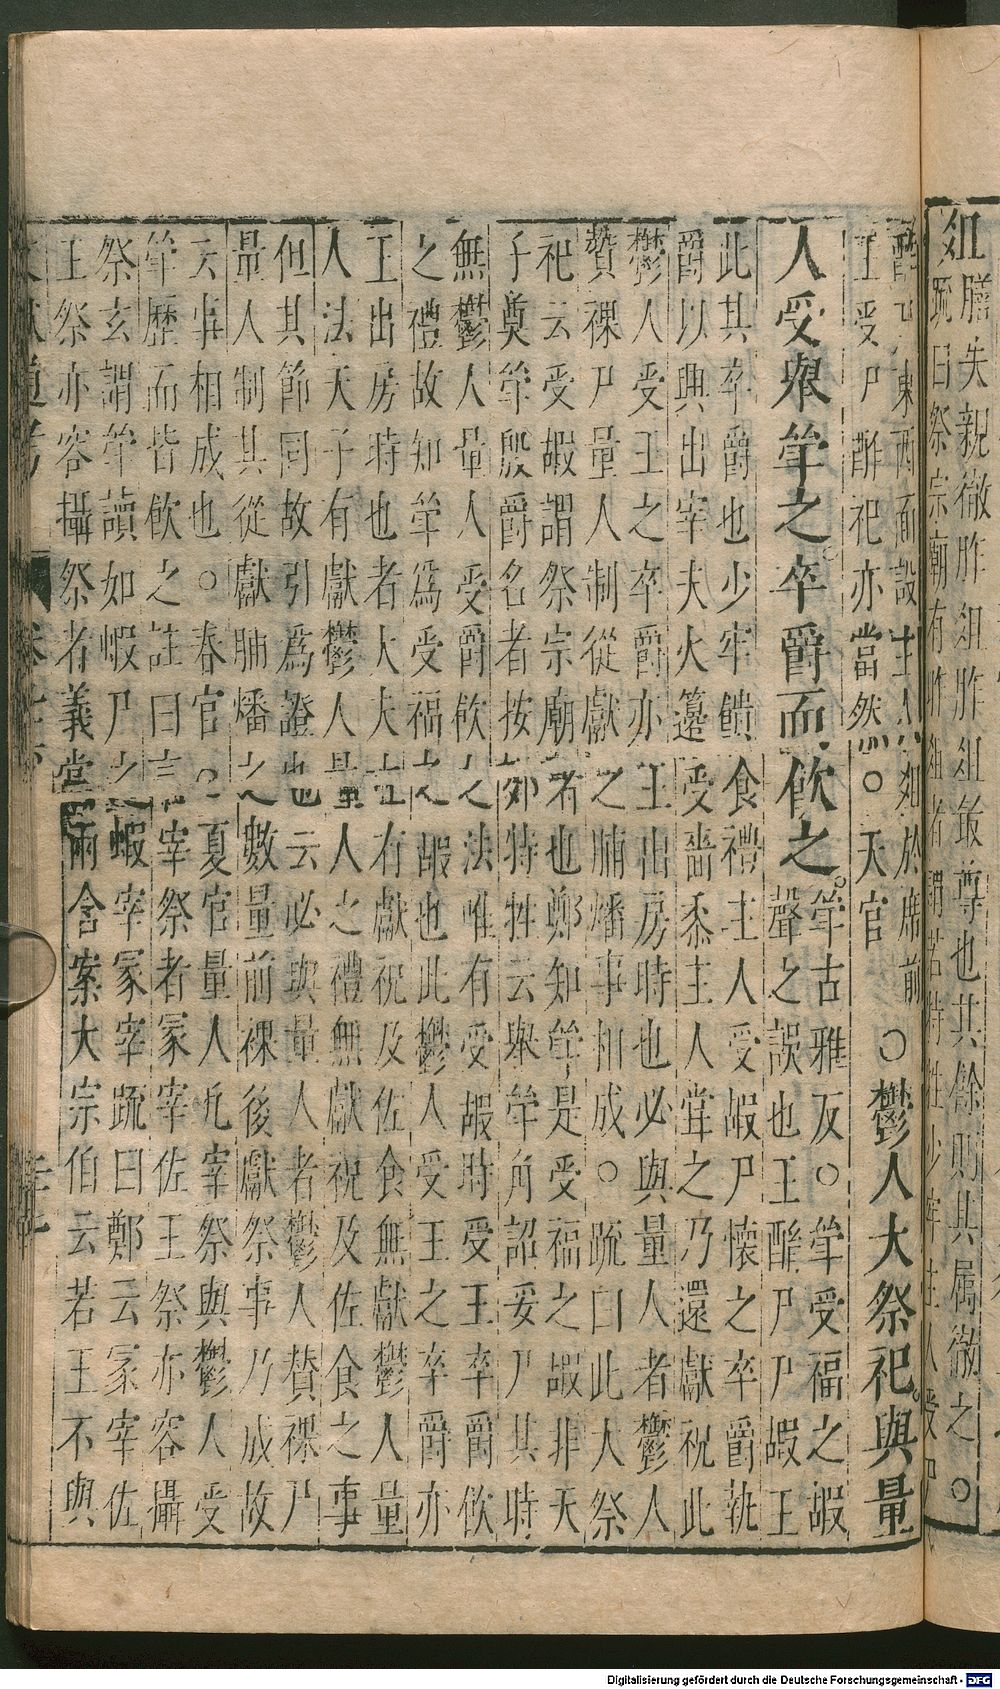 膳夫親徹胙俎胙俎最尊也其餘則其屬徹之○
俎疏曰祭宗廟有胙俎者謂若特牲少牢主人受尸
酢戶東西面設主人俎於席前
王受尸酢祀亦當然○天官
○鬱人大祭祀與量
人受舉斝之卒爵而飲之
斝古雅反○斝受福之嘏
聲之誤也王酳尸尸嘏王
此其卒爵也少牢饋食禮主人受嘏尸懷之卒爵執
爵以興出宰夫以籩受嗇黍主人嘗之乃還獻祝此
鬱人受王之卒爵亦王出房時也必與量人者鬱人
贊祼尸量人制從獻之脯燔事相成○疏曰此大祭
祀云受嘏謂祭宗廟者也鄭知斝是受福之嘏非天
子奠斝殷爵名者按郊特牲云舉斝角詔妥尸其時
無鬱人量人受爵飲之法唯有受嘏時受王卒爵飲
之禮故知斝爲受福之嘏也此鬱人受王之卒爵亦
王出房時也者大夫士有獻祝及佐食無獻鬱人量
人法天子有獻鬱人量人之禮無獻祝及佐食之事
但其節同故引爲證也云必與量人者鬱人賛祼尸
量人制其從獻脯燔之數量前祼後獻祭事乃成故
云事相成也○春官○夏官量人凡宰祭與鬱人受
斝歷而皆飲之註曰言宰祭者冢宰佐王祭亦容攝
祭玄謂斝讀如蝦尸之蝦宰冢宰疏曰鄭云冢宰佐
王祭亦容攝祭者義當兩含案大宗伯云若王不與
Digitalisierung gefördert durch die Deutsche Forschungsgemeinschaft - DFG